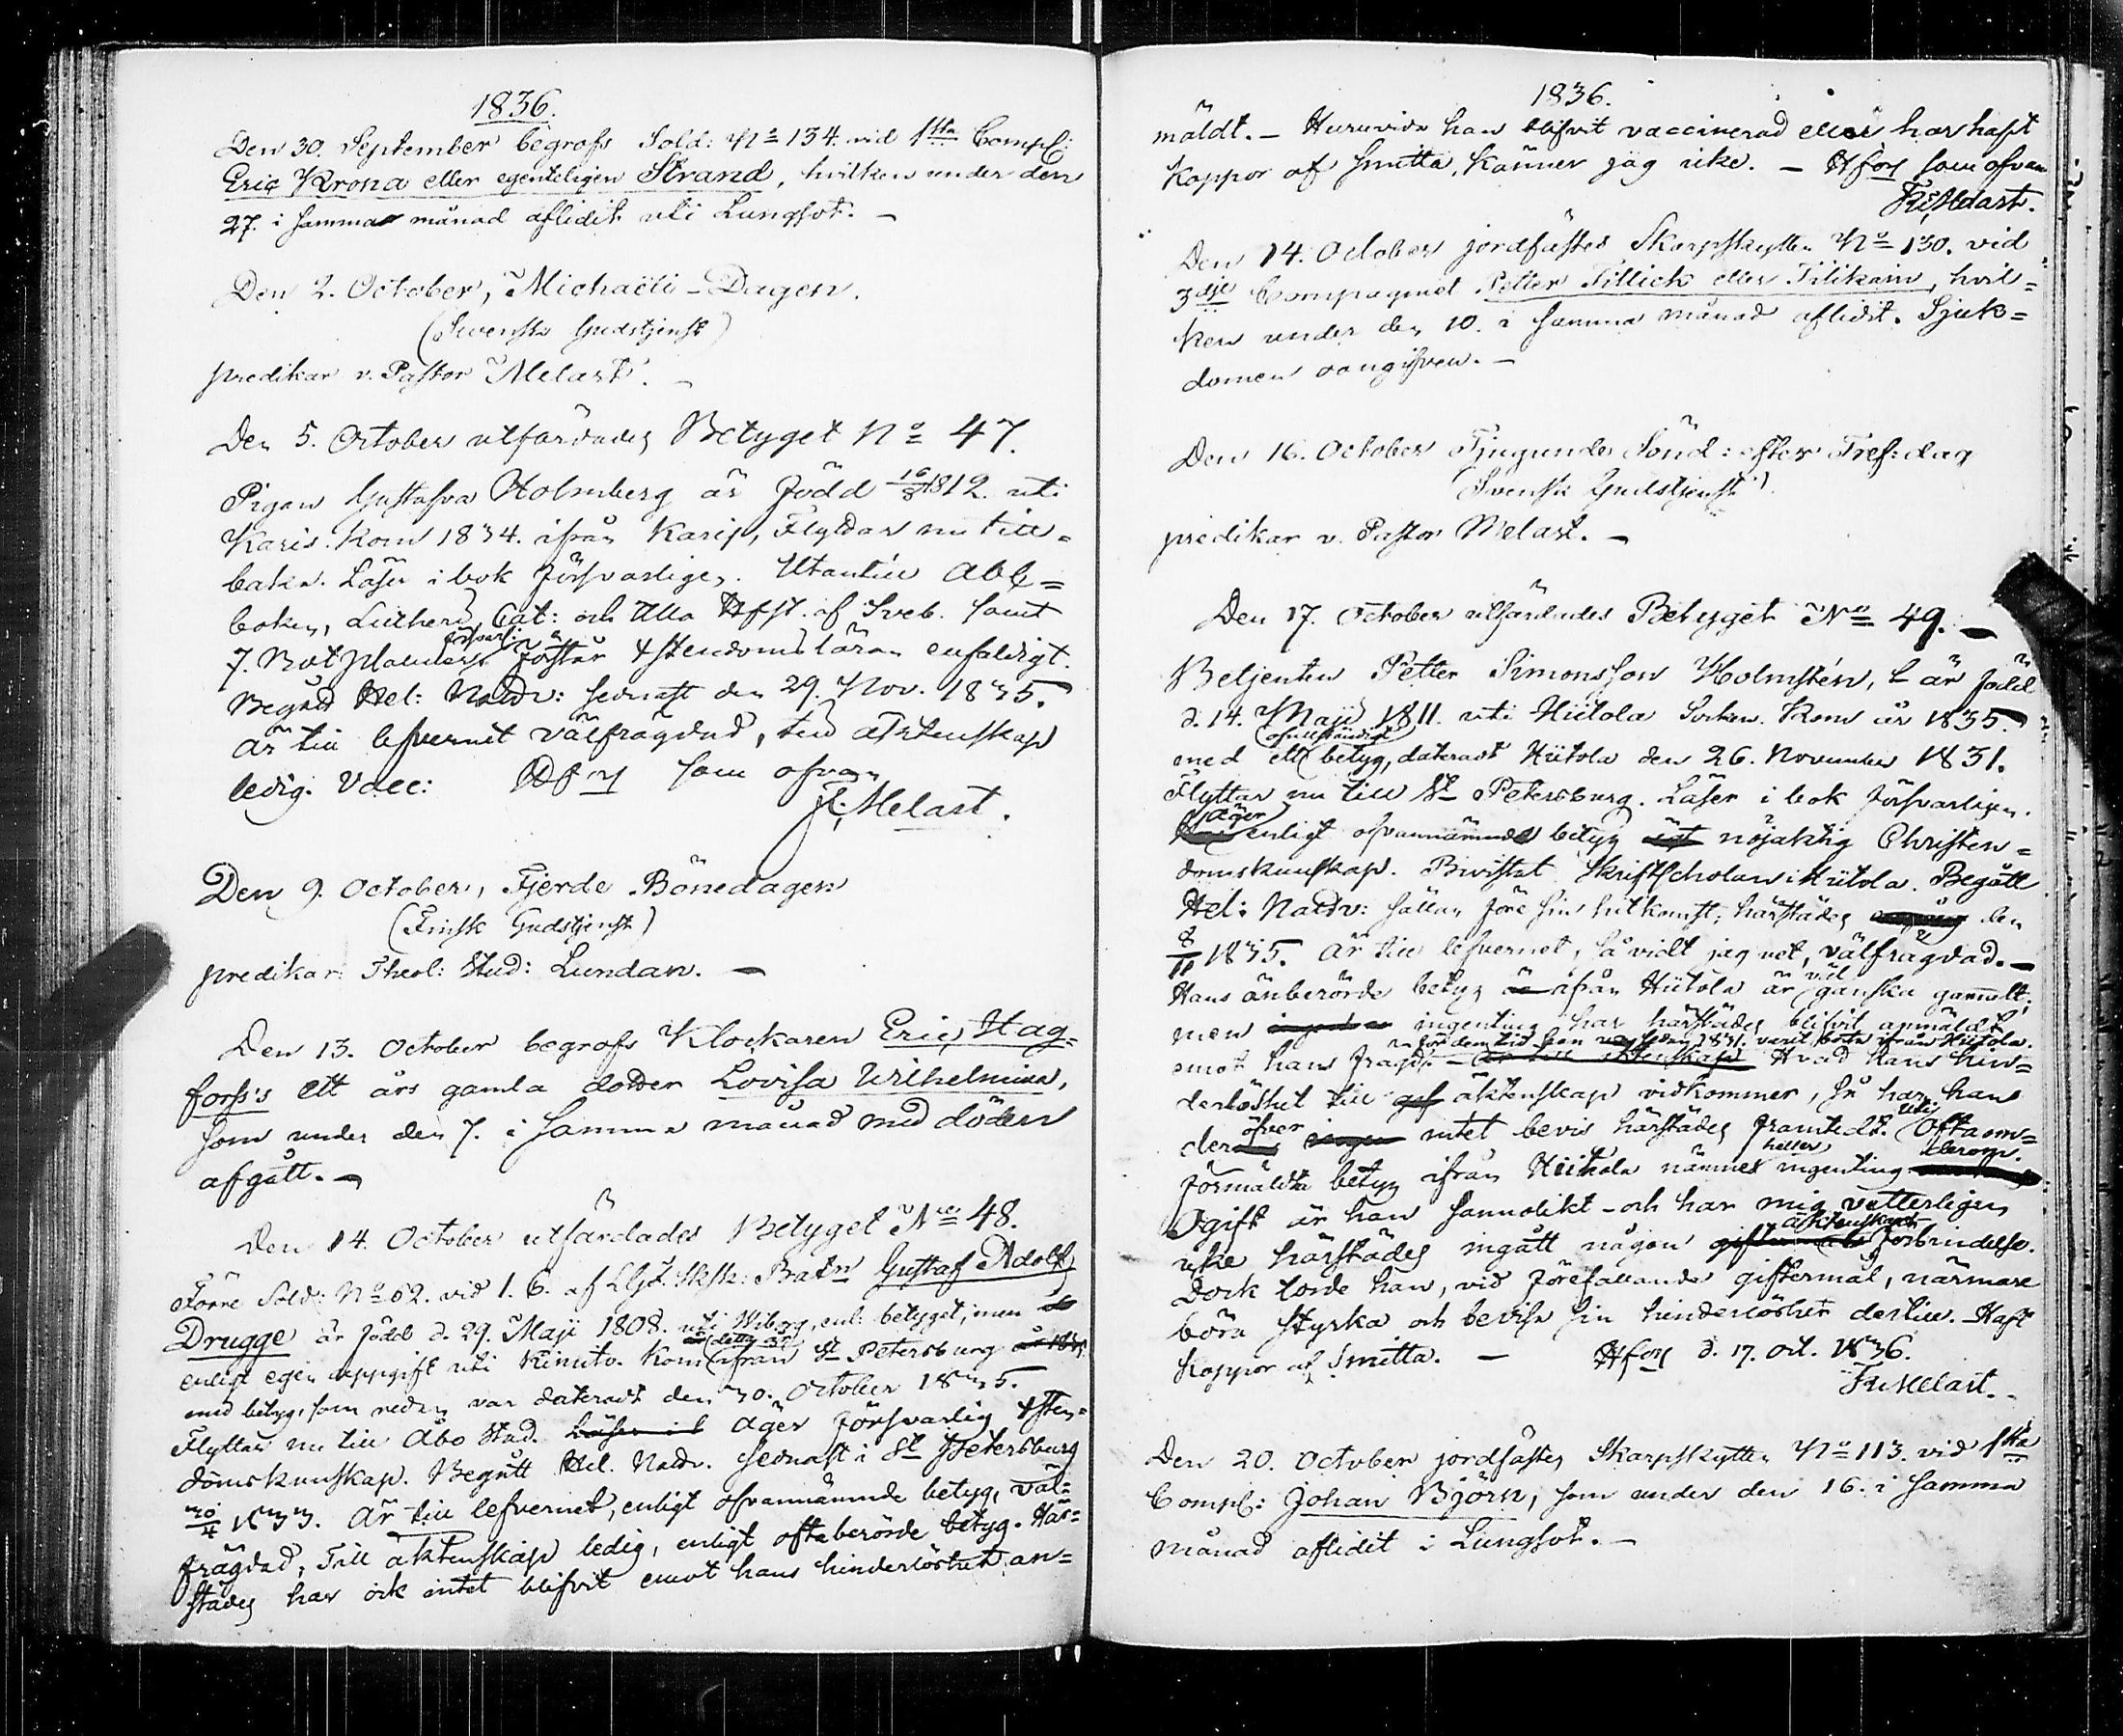 1836.
Den 30. September begrofs Sold: No 134. vid 1sta Comp:
Eric Krona eller egenteligen Strand, hvilken under den
27. i samma månad aflidit uti Lungsot. –
Den 2. October, Michaëli-Dagen.
(Svensk Gudstjenst)
predikar v. Pastor Melart. –
Den 5. October utfärdades Betyget No 47.
Pigan Gustafva Holmberg är född 16/8 1812. uti
Karis. Kom 1834. ifrån Karis, Flyttar nu till-
baka. Läser i bok försvarligen. Utantill Abc-
boken, Lutheri Cat: och Alla Hfst. af Sveb. samt
7. Botpsalmer försvarl: Förstår Xstendomsläran enfaldigt.
Begått Hel: Nattv: sednast den 29. Nov. 1835.
Är till lefvernet välfrägdad, till äktenskap
ledig. Vacc: Hfors som ofvan
Fr: Melart.
Den 9. October, Fjerde Bönedagen
(Finsk Gudstjenst)
predikar: Theol: Stud: Lundan. –
Den 13. October begrofs Klockaren Eric Hag-
forss's ett års gamla dotter Lovisa Wilhelmina,
som under den 7. i samma månad med döden
afgått. –
Den 14. October utfärdades Betyget No 48.
Förre Sold: No 62. vid 1. C. af Sksk: Batn Gustaf Adolf
Drugge är född d. 29. Maji 1808. uti Wiborg, enl: betyget; men
enligt egen uppgift uti Kimito. Kom detta år ifrån St Petersburg
med betyg, som redan var dateradt den 30. October 1835.
Flyttar nu till Åbo Stad. Läser i b Äger försvarlig Xsten-
domskunskap. Begått Hel. Nattv. sednast i St Petersburg
30/4 1833. Är till lefvernet, enligt ofvannämnde betyg, väl-
frägdad; Till äktenskap ledig, enligt oftaberörde betyg. Här-
städes har ock intet blifvit emot hans hinderlöshet an-
1836.
mäldt. – Huruvida han blifvit vaccinerad eller har haft
koppor af smitta, känner jag icke. – Hfors som ofvan
Fr: Melart.
Den 14. October jordfästes Skarpskytten No 130. vid
3dje Compagniet Petter Tillich eller Tilikain, hvil-
ken under den 10. i samma månad aflidit. Sjuk-
domen oangifven. –
Den 16. October Tjugunde Sönd: efter Tref:dag
(Svensk Gudstjenst)
predikar v. Pastor Melart. –
Den 17. October utfärdades Betyget No 49. –
Betjenten Petter Simonsson Holmstén, är född
d. 14. Maji 1811. uti Hiitola Socken. Kom år 1835.
med ett ofullständigt betyg, dateradt Hiitola den 26. November 1831.
Flyttar nu till St Petersburg. Läser i bok försvarligen.
Äger enligt ofvannämnde betyg nöjaktig Christen-
domskunskap. Bivistat Skriftscholan i Hiitola. Begått
Hel: Nattv: sällan före sin hitkomst; härstädes den
8/11 1835. Är till lefvernet, så vidt jag vet, välfrägdad. –
Hans anberörde betyg ifrån Hiitola är väl ganska gammalt;
men ingenting har härstädes blifvit anmäldt
emot hans frägd, för den tid han sedan 1831. varit borta ifrån Hiitola. Hvad hans hin-
derlöshet till äktenskap vidkommer, så har han
deröfver intet bevis härstädes framtedt. Uti Oftaom-
förmäldta betyg ifrån Hiitola nämnes heller ingenting derom.
Ogift är han sannolikt – och har mig vetterligen
icke härstädes ingått någon äktenskaps förbindelse.
Dock torde han, vid förefallande giftermål, närmare
böra styrka och bevisa sin hinderlöshet dertill. Haft
koppor af Smitta. – Hfors d. 17. Oct. 1836.
Fr: Melart.
Den 20. October jordfästes Skarpskytten No 113. vid 1sta
Comp: Johan Björn, som under den 16. i samma
månad aflidit i Lungsot. –